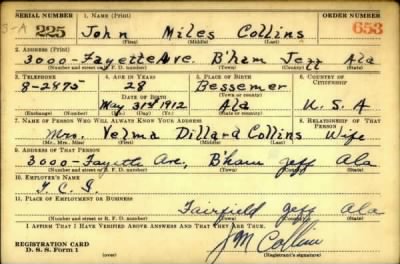 SERIAL NUMBER 1. NAME (Print) ORDER NUMBER
S-A 225 John Miles Collins 653
(First) (Middle) (Last)
2. ADDRESS (Print)
3000-Fayette Ave. B'ham Jeff Ala
(Number and street or R. F. D. number) (Town) (County) (State)
3. TELEPHONE 4. AGE IN YEARS 5. PLACE OF BIRTH 6. COUNTRY OF CITIZENSHIP
8-2475 28 Bessemer
DATE OF BIRTH (Town or county)
May 31st 1912 Ala U.S.A
(Exchange) (Number) (Mo.) (Day) (Yr.) (State or country)
7. NAME OF PERSON WHO WILL ALWAYS KNOW YOUR ADDRESS 8. RELATIONSHIP OF THAT PERSON
Mrs. Velma Dillard Collins Wife
(Mr., Mrs., Miss) (First) (Middle) (Last)
9. ADDRESS OF THAT PERSON
3000-Fayette Ave, B'ham Jeff Ala
(Number and street or R. F. D. number) (Town) (County) (State)
10. EMPLOYER'S NAME
T.C.I
11. PLACE OF EMPLOYMENT OR BUSINESS
Fairfield Jeff Ala
(Number and street or R. F. D. number) (Town) (County) (State)
I AFFIRM THAT I HAVE VERIFIED ABOVE ANSWERS AND THAT THEY ARE TRUE.
J M Collins
REGISTRATION CARD
D. S. S. Form 1 (over) (Registrant's signature)